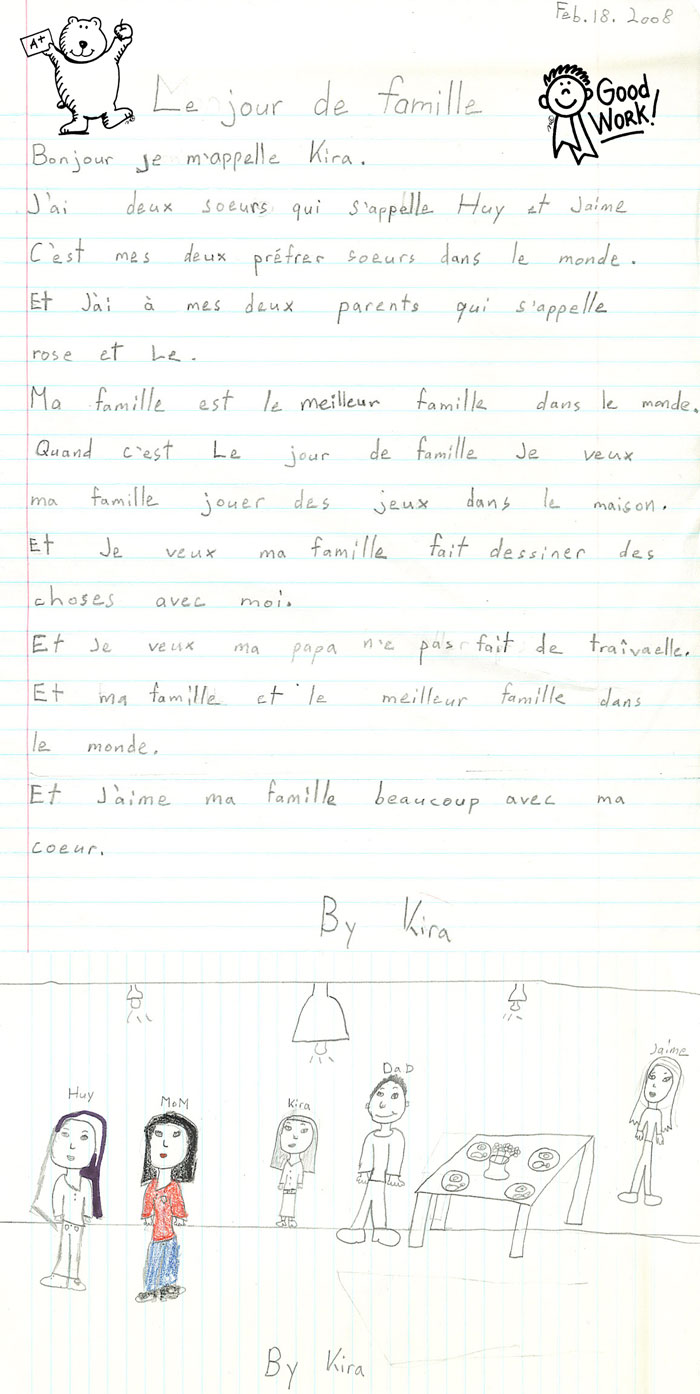 Feb. 18. 2008
A+
Le jour de famille
Good Work!
Bonjour je m'appelle Kira.
J'ai deux soeurs qui s'appelle Huy et Jaime
C'est mes deux préfrer soeurs dans le monde.
Et J'ai à mes deux parents qui s'appelle
rose et Le.
Ma famille est le meilleur famille dans le monde.
Quand c'est Le jour de famille Je veux
ma famille jouer des jeux dans le maison.
Et Je veux ma famille fait dessiner des
choses avec moi.
Et Je veux ma papa n'e pas fait de traîvaelle.
Et ma famille et le meilleur famille dans
le monde.
Et J'aime ma famille beaucoup avec ma
coeur.
By Kira
Jaime
DaD
Huy
MoM
Kira
By Kira